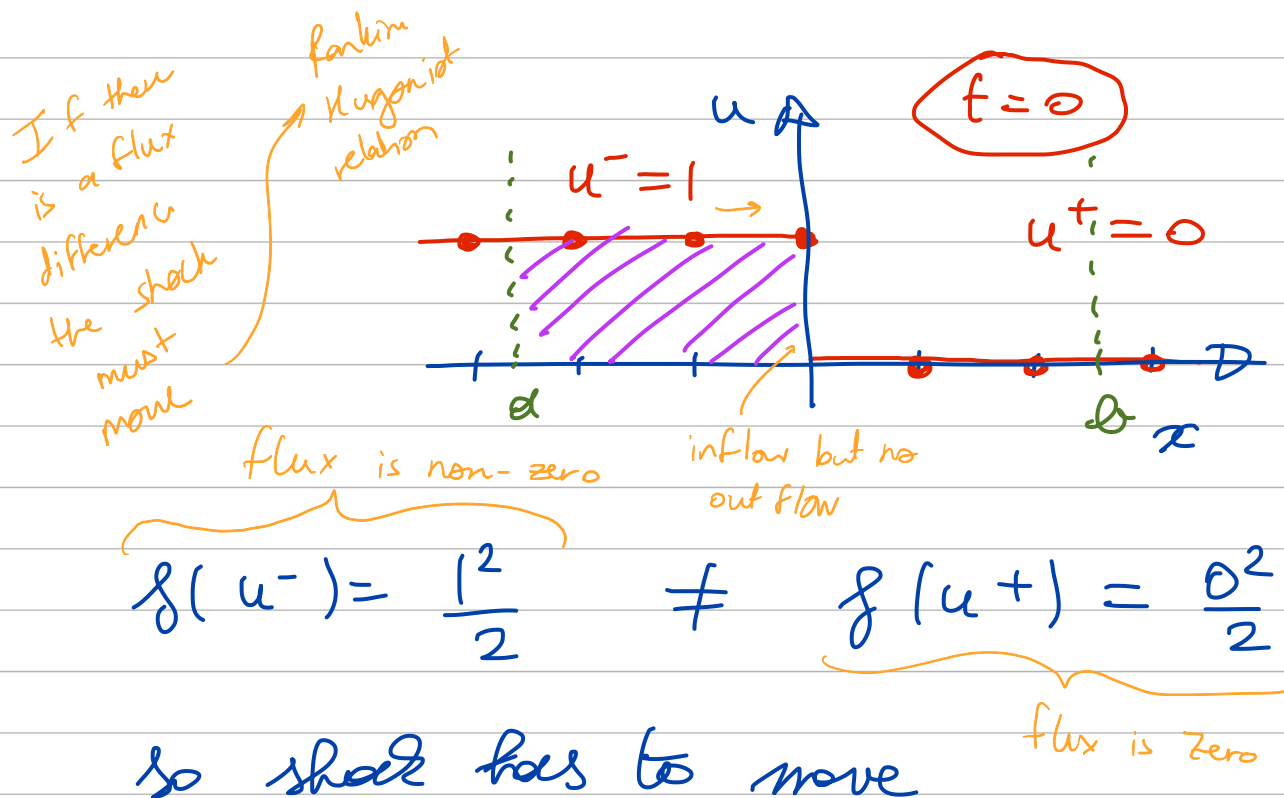 If there
is a flux
difference
the shock
must
move
Rankine
Hugoniot
relation
t = 0
u
u⁻ = 1
u⁺ = 0
a
b
x
inflow but no
outflow
flux is non-zero
f(u⁻) = 1²/2 ≠ f(u⁺) = 0²/2
flux is zero
so shock has to move